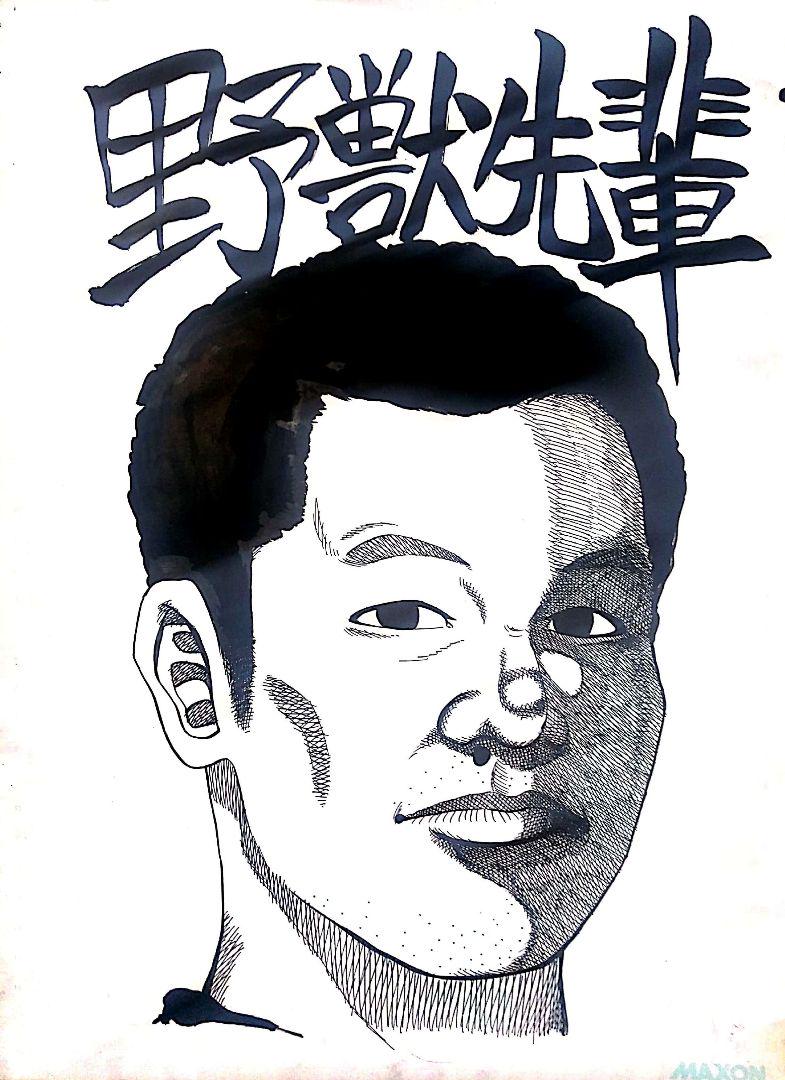 野獣先輩
MAXON